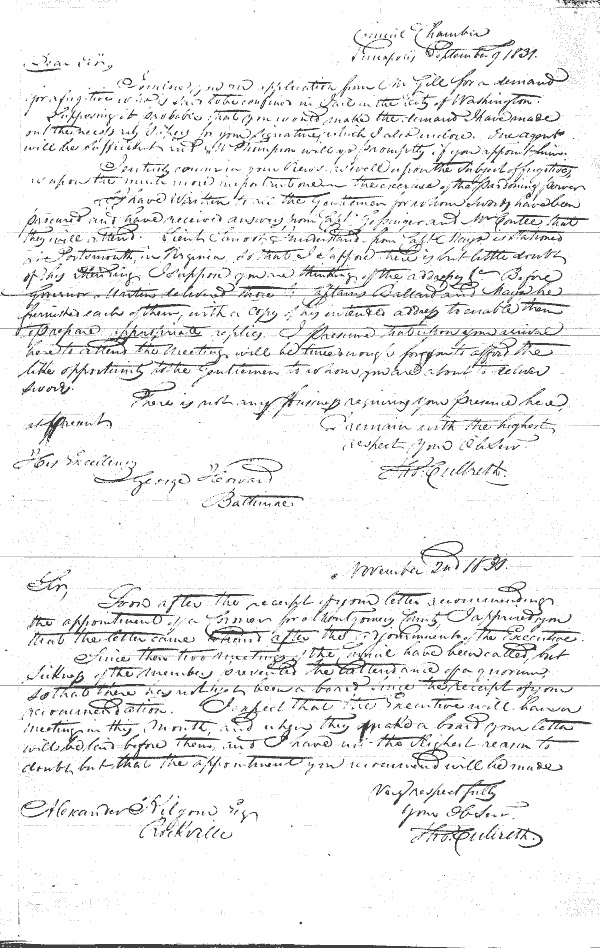 Council Chamber
Annapolis September 9 1831.
Dear Sir,
I enclose you an application from Mr Gill for a demand
for a fugitive who is said to be confined in Jail in the City of Washington.
Supposing it probable that you would make the demand I have made
out the necessary papers for your signature, which I also enclose. One agent
will be sufficient and Mr Thompson will go promptly if you appoint him.
I entirely concur in your views as well upon the subject of fugitives
as upon the much more important one in the exercise of the pardoning power
I have written to all the Gentlemen for whom Swords have been
procured and have received answers from Capt and Mr Contee that
they will attend. I understand from Capt Mayo is stationed
at Portsmouth, in Virginia, so that I suppose there is but little doubt
of his attending. I suppose you are thinking of the address &c. Before
Governor Martin delivered those to Captains Ballard and Mayo he
furnished each of them, with a copy of his intended address to enable them
to prepare appropriate replies. I presume that upon your arrival
here to attend the Meeting will be time enough for you to afford the
like opportunity to the Gentlemen to whom you are about to deliver
swords.
There is not any business requiring your presence here,
at present
I remain with the highest
respect your Ob Serv
Tho. Culbreth.
His Excellency
George Howard
Baltimore
November 2nd 1831.
Sir,
Soon after the receipt of your letter recommending
the appointment of a Coroner for Montgomery County, I apprised you
that the letter came to hand after the adjournment of the Executive.
Since then two meetings of the Council have been called, but
sickness of the Members prevented the attendance of a quorum,
so that there has not been a board since the receipt of your
recommendation. I expect that the Executive will have a
meeting in this Month, and when they make a board your letter
will be laid before them, and I have not the slightest reason to
doubt, but that the appointment you recommend will be made
Very respectfully
Your Ob Serv.
Tho. Culbreth.
Alexander Kilgour Esqr
Rockville